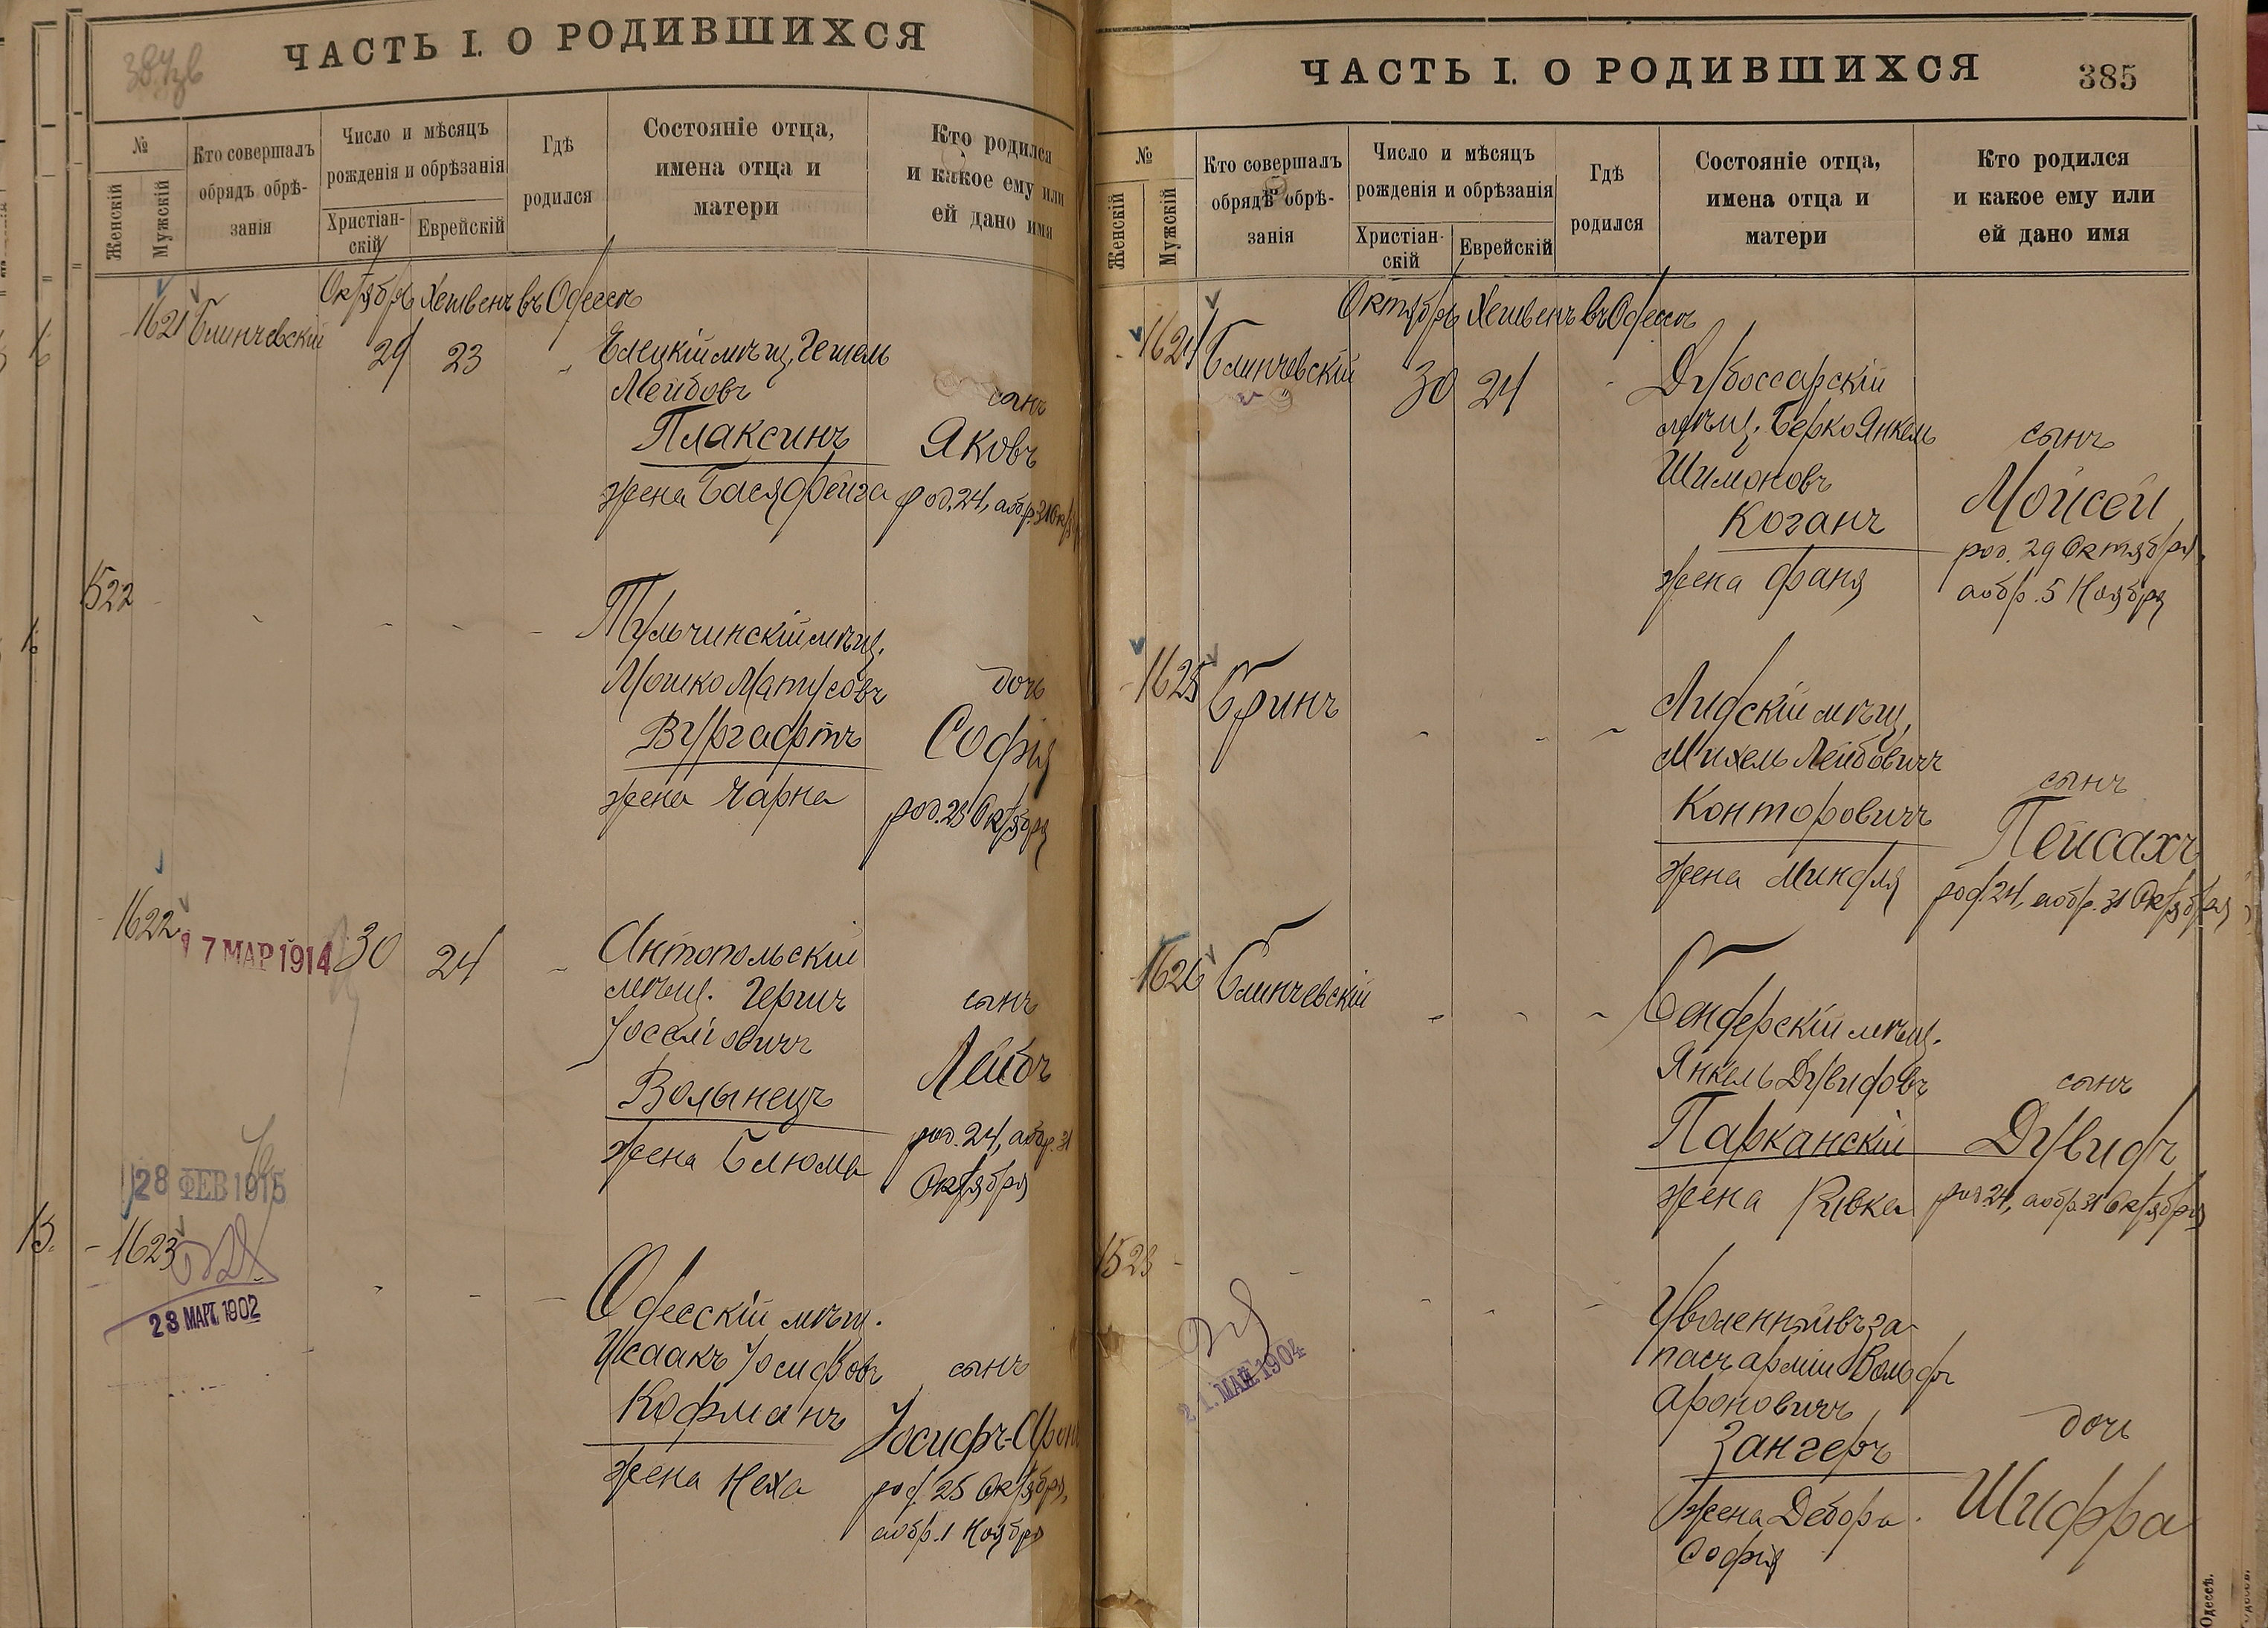 ЧАСТЬ I. О РОДИВШИХСЯ
№
Женскій
Мужскій
Кто совершалъ
обрядъ обрѣ-
занія
Число и мѣсяцъ
рожденія и обрѣзанія
Христіан-
скій
Еврейскій
Гдѣ
родился
Состояніе отца,
имена отца и
матери
Кто родился
и какое ему или
ей дано имя
Октябрь Хешвенъ въ Одессѣ
1621 Блинчевскій 29 23
Елецкій мѣщ. Гешель
Лейбовъ
Плаксинъ
жена Бася Фейга
сынъ
Яковъ
род. 24, а обр. 31 Окт
1522
Тульчинскій мѣщ.
Мошко Матусовъ
Вургафтъ
жена Чарна
дочь
Софія
род. 23 Октября
1622
17 МАР 1914
30 24
Антопольскій
мѣщ. Гершъ
Іоселіовичъ
Волынецъ
жена Блюма
сынъ
Лейбъ
род. 24, а обр. 31
Октября
28 ФЕВ 1915
1623
28 МАРТ. 1902
Одесскій мѣщ.
Исаакъ Іосифовъ
Кофманъ
жена Неха
сынъ
Іосифъ-Аронъ
род. 25 Октября,
а обр. 1 Ноября
ЧАСТЬ I. О РОДИВШИХСЯ 385
№
Женскій
Мужскій
Кто совершалъ
обрядъ обрѣ-
занія
Число и мѣсяцъ
рожденія и обрѣзанія
Христіан-
скій
Еврейскій
Гдѣ
родился
Состояніе отца,
имена отца и
матери
Кто родился
и какое ему или
ей дано имя
Октябрь Хешвенъ въ Одессѣ
1624 Блинчевскій 30 24
Дубоссарскій
мѣщ. Берко Янкель
Шимоновъ
Коганъ
жена Фаня
сынъ
Мойсей
род. 29 Октября,
а обр. 5 Ноября
1625 Бринъ
Лидскій мѣщ.
Михель Лейбовичъ
Конторовичъ
жена Миндля
сынъ
Пейсахъ
род. 24, а обр. 31 Октября
1626 Блинчевскій
Бендерскій мѣщ.
Янкель Дувидовъ
Парканскій
жена Ривка
сынъ
Дувидъ
род. 24, а обр. 31 Октября
1523
21. МАЙ 1904
Уволенный въ за-
пасъ арміи Вольфъ
Ароновичъ
Зангеръ
жена Дебора-
Софія
дочь
Шифра
Одессѣ.